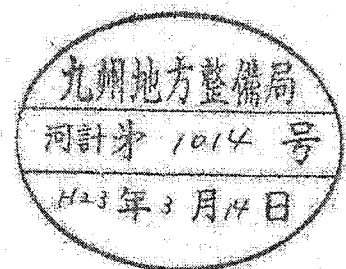 九州地方整備局
河計第 1014 号
H23年3月14日